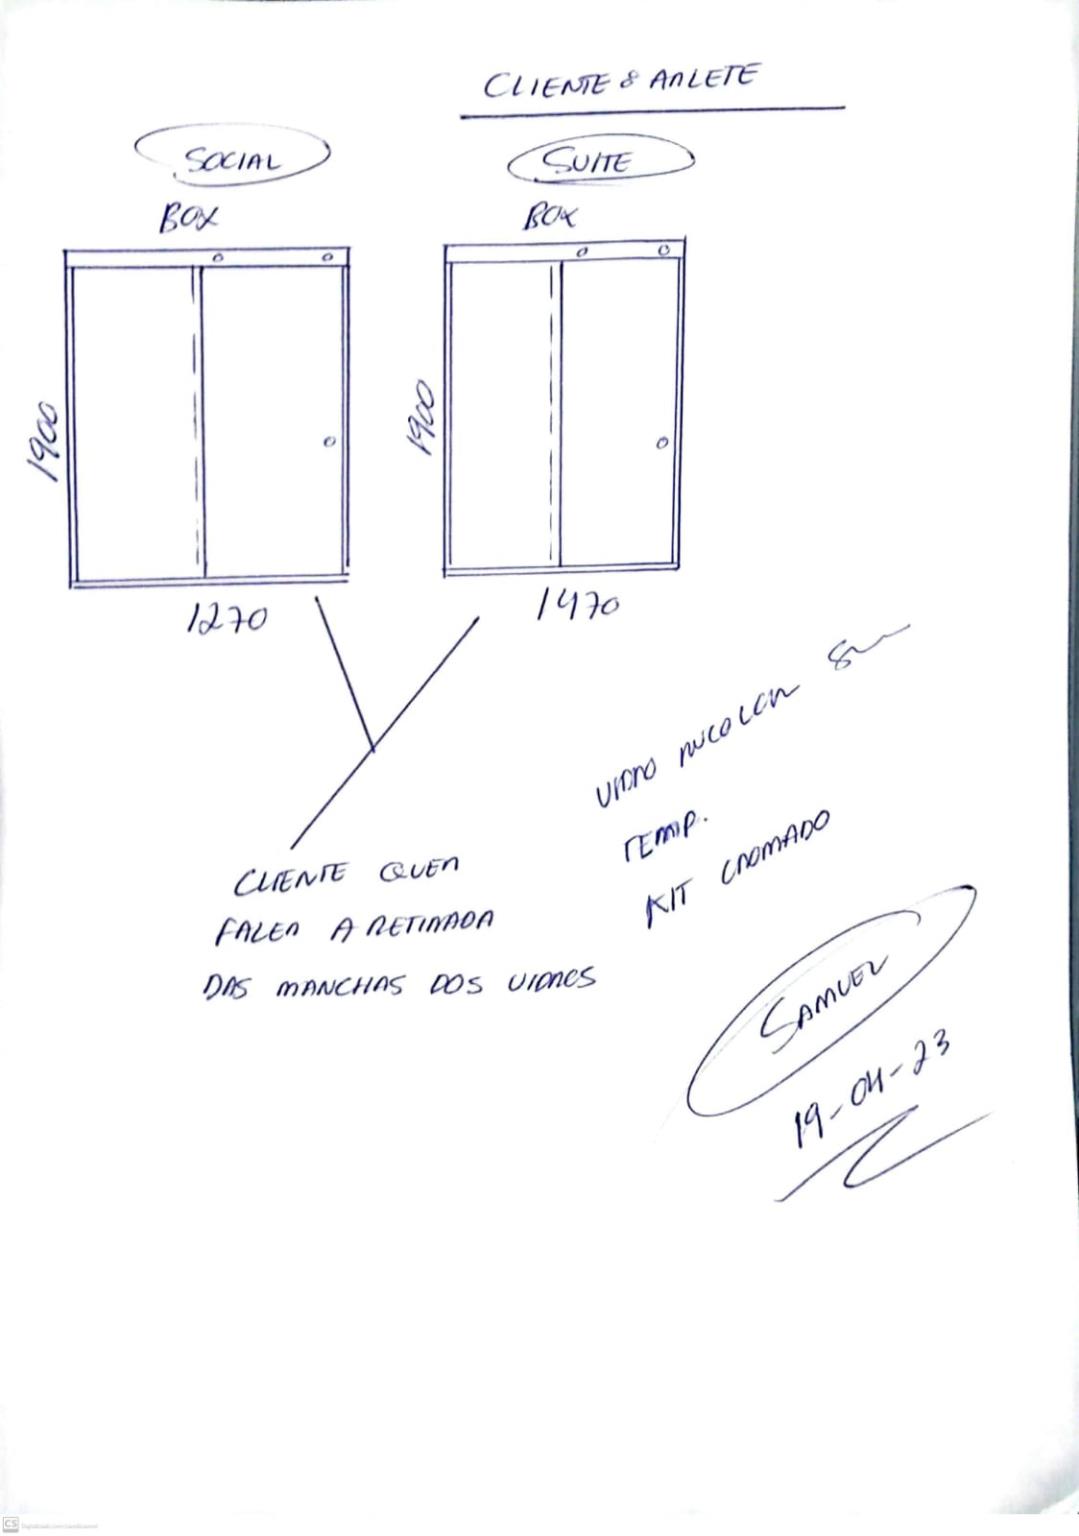 CLIENTE: ARLETE
SOCIAL
SUITE
BOX
BOX
1900
1900
1270
1470
VIDRO INCOLOR 8mm
TEMP.
KIT CROMADO
CLIENTE QUER
FAZER A RETIRADA
DAS MANCHAS DOS VIDROS
SAMUEL
19-04-23
CS